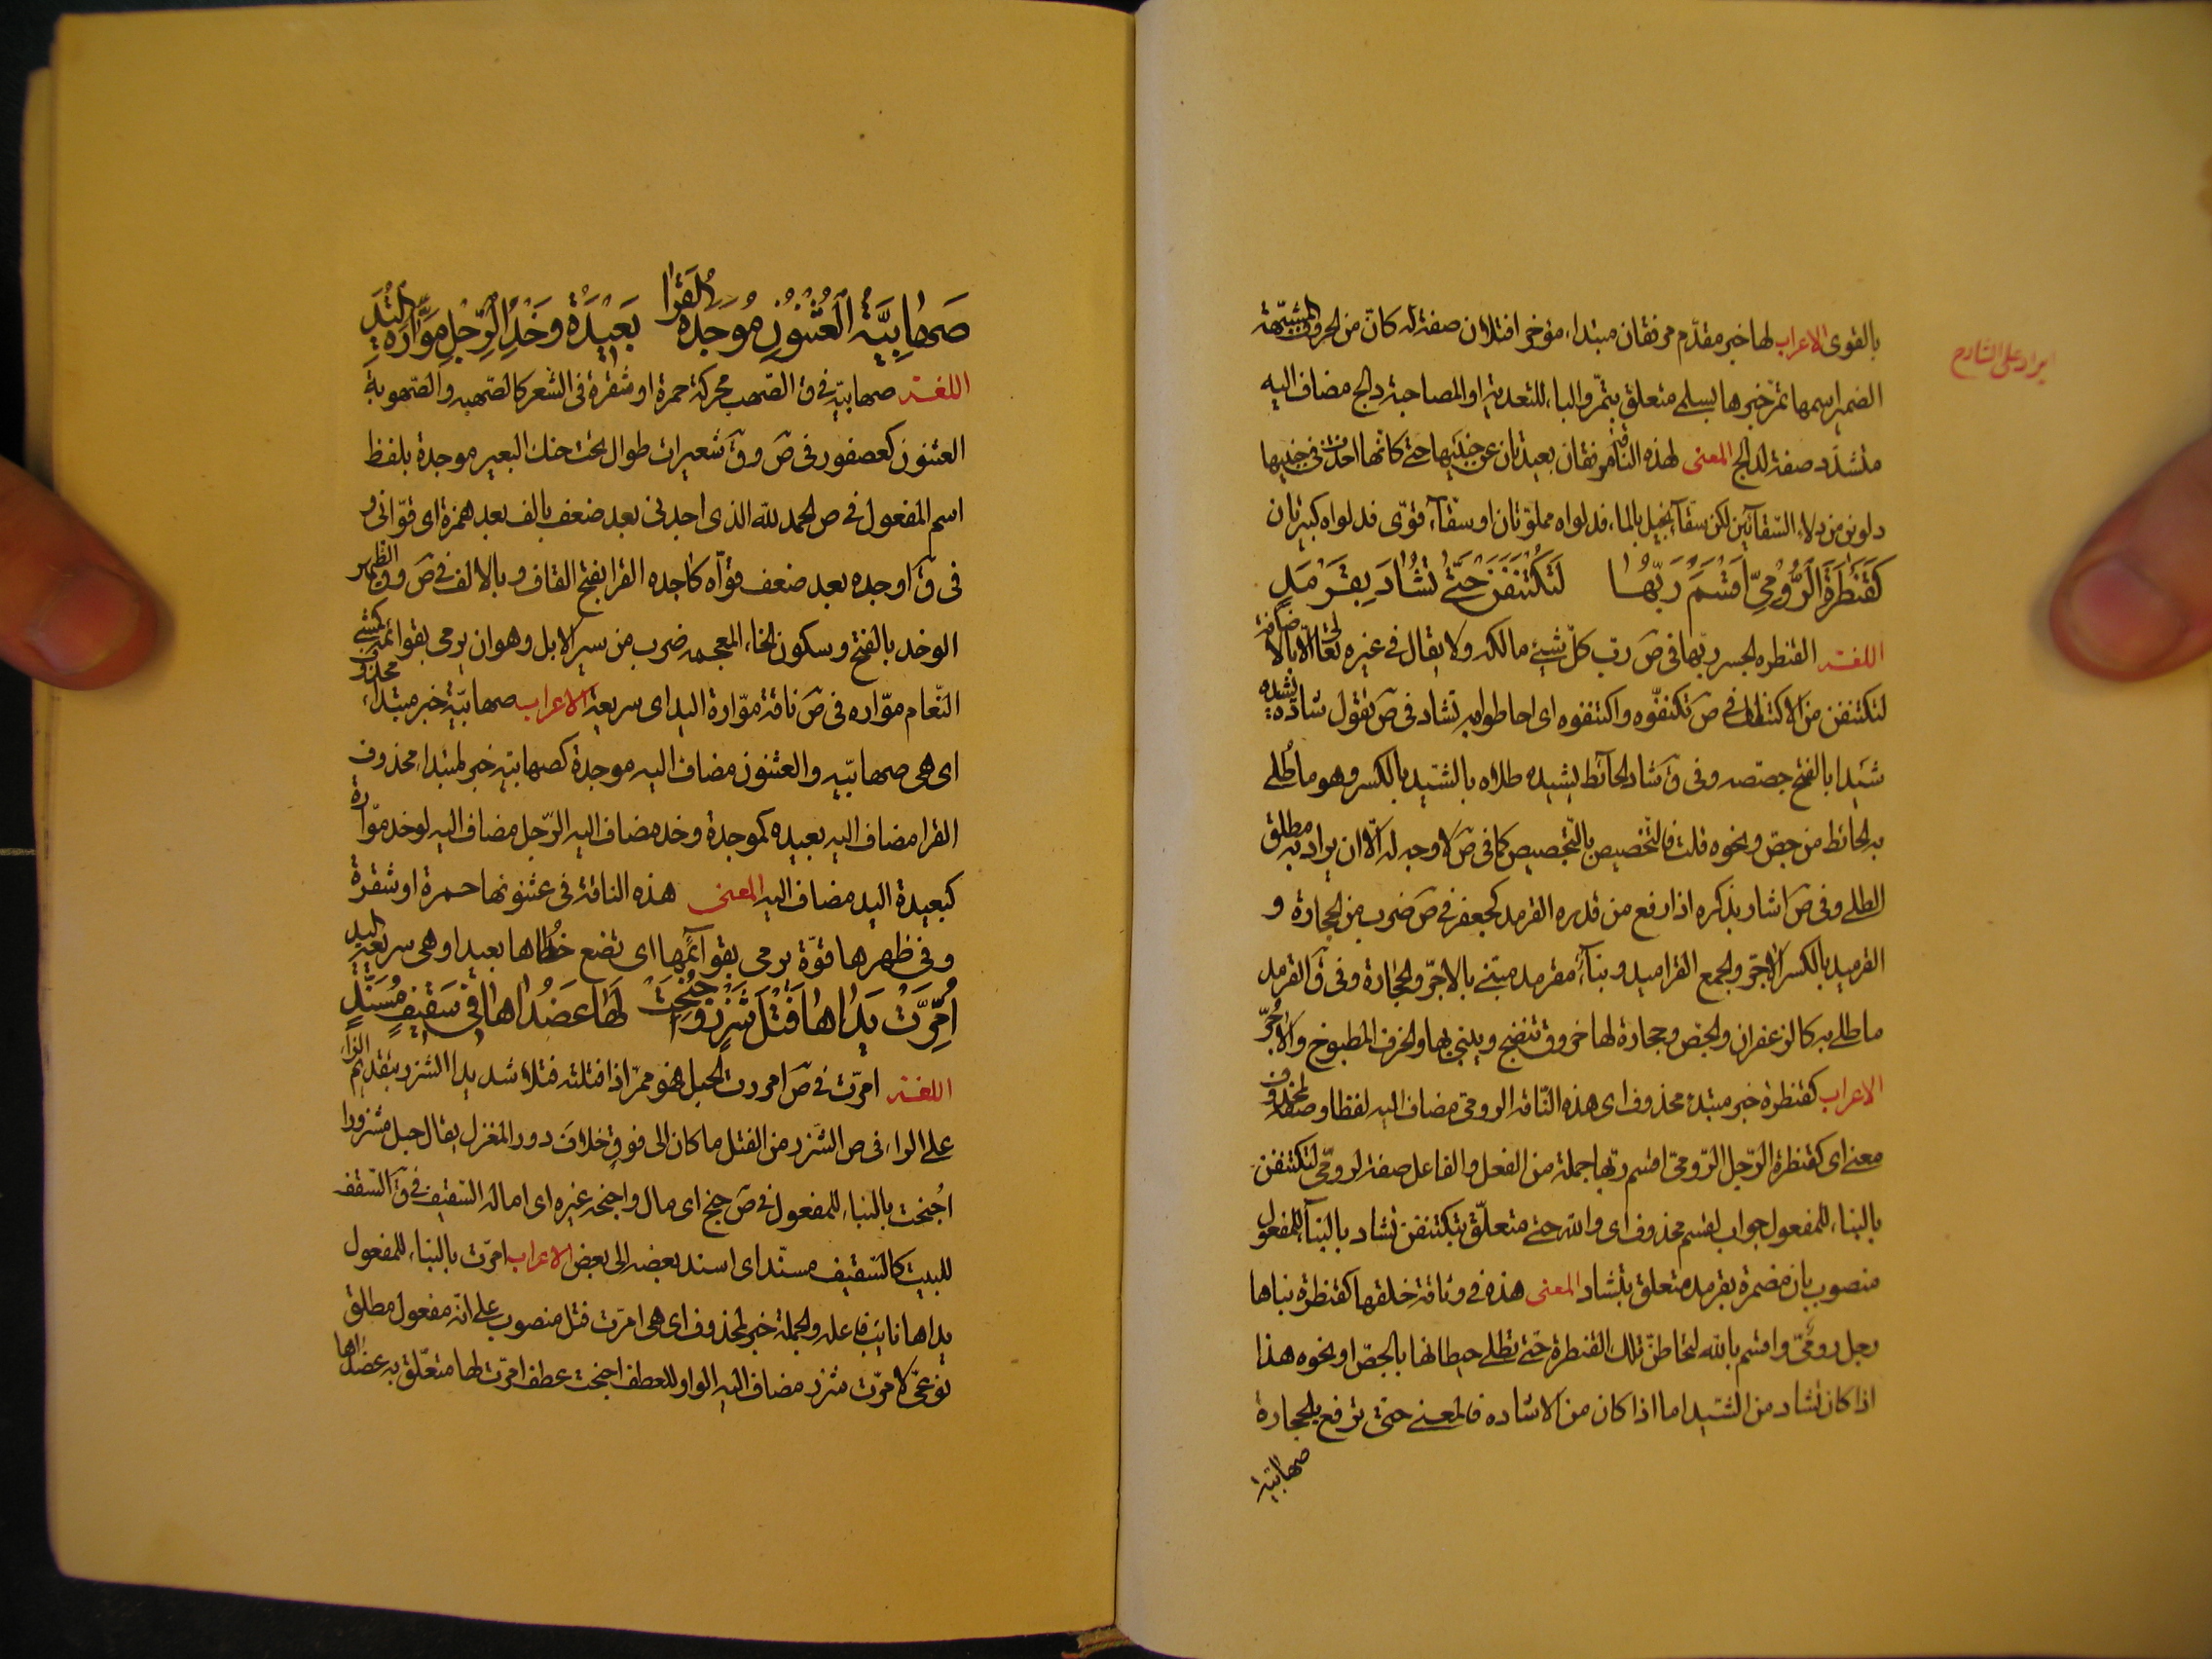 بالقوى الاعراب لها خبر مقدّم مرفقان مبتداء مؤخر افتلان صفة له كانّ من الحروف المشبّهة
ايراد على الشارح
الضمير اسمها تمرّ خبرها بسلمى متعلق بتمرّ والباء للتعدية او المصاحبة دالج مضاف اليه
متشدّد صفة لدالج المعنى لهذه الناقة مرفقان بعيدتان عن جنبيها حتى كانّها اخذت فى جنبيها
دلوين من دلاء السّقائين لكن سقاء بالماء فدلواه مملوّتان او سقاء قوّى فدلواه كبيرتان
كَقَنْطَرَةِ الرُّومِيِّ اَقْسَمَ رَبُّهَا لَتُكْتَنَفَنْ حَتّٰى تُشَادَ بِقَرْمَدٍ
اللغة القنطره الجسر ربّها فى صَ ربّ كلّ شيئ مالكه ولا يقال فى غيره تعالى الّا بالاضافة
لتكتنفن من الاكتناف فى صَ تكنّفوه واكتنفوه اى احاطوا به تشاد فى صَ تقول شاده يشيده
شيدا بالفتح جصّصه وفى قَ شاد الحائط يشيده طلاه بالشيد بالكسر وهو ما طُلى
به الحائط من جصّ ونحوه قلت فالتّخصيص بالتّجصيص كما فى صَ لا وجه له الّا ان يراد به مطلق
الطلى وفى صَ اشاد بذكره اذا رفع من قدره القرمد كجعفر فى صَ ضرب من الحجارة و
القرميد بالكسر الاجرّ والجمع القراميد وبناء مقرمد مبنى بالاجرّ والحجارة وفى قَ القرمد
ما طلى به كالزعفران والجصّ وحجارة لها خروق تنضج ويبنى بها والخزف المطبوخ والاجُرّ
الاعراب كقنطرة خبر مبتدء محذوف اى هذه النّاقة الرومىّ مضاف اليه لفظا وصفة لمحذوف
معنى اى كقنطرة الرّجل الرّومىّ اقسم ربّها جملة من الفعل والفاعل صفة لرومىّ لتكتنفن
بالبناء للمفعول جواب لقسم محذوف اى والله حتى متعلّق بتكتنفن تشاد بالبناء للمفعول
منصوب بان مضمرة بقرمد متعلق بتشاد المعنى هذه فى وثاقة خلقها كقنطرة بناها
رجل رومىّ واقسم بالله لتحاطنّ تلك القنطرة حتى تطلى حيطانها بالجصّ او نحوه هذا
اذا كان تشاد من الشيد اما اذا كان من الاشاده فالمعنى حتى ترفع بالحجارة
صهابيّة
صَهَابِيَّةُ الْعُثْنُونِ مُوجَدَةُ الْقَرَا بَعِيْدَةُ وَخْدِ الرِّجْلِ مَوَّارَةُ الْيَدِ
اللغة صهابيّة فى ق الصّهب محركة حمرة او شقرة فى الشعر كالصّهبه والصّهوبةِ
العثنون كعصفور فى صَ وقَ شعيرات طوال تحت حنك البعير موجدة بلفظ
اسم المفعول فى ص الحمد لله الذى اجدنى بعد ضعف بالف بعد همزة اى قوّانى و
فى قَ اوجده بعد ضعف قوّاه كاجده القرا بفتح القاف وبالالف فى صَ وقَ الظهر
الوخد بالفتح وسكون الخاء المعجمه ضرب من سير الابل وهو ان يرمى بقوائمه كمشى
النّعام موّاره فى صَ ناقة موّارة اليد اى سريعة الاعراب صهابيّة خبر مبتداء محذوف
اى هى صهابيّه والعثنون مضاف اليه موجدة كصهابيّه خبر لمبتداء محذوف
القرا مضاف اليه بعيده كموجدة وخد مضاف اليه الرّجل مضاف اليه لوخد موّارة
كبعيدة اليد مضاف اليه المعنى هذه الناقة فى عثنونها حمرة او شقرة
وفى ظهرها قوّة يرمى بقوائمها اى تضع خطاها بعيدا وهى سريعة اليد
اُمِرَّتْ يَدَاهَا فَتْلَ شَزْرٍ وَاُجْنِحَتْ لَهَا عَضُدَاهَا فِى سَقِيْفٍ مُسَنَّدٍ
اللغة امرّت فى صَ امررت الحبل فهو ممرّ اذا فتلته فتلا شديدا الشزر بتقديم الزاء
على الراء فى ص الشّزر من الفتل ما كان الى فوق خلاف دور المغزل يقال حبل مشزورا
اُجنحت بالبناء للمفعول فى صَ جنح اى مال واجنحه غيره اى اماله السّقيف فى قَ السّقف
للبيت كالسّقيف مسنّد اى اسند بعضه الى بعض الاعراب امرّت بالبناء للمفعول
يداها نايب فاعله والجملة خبر لمحذوف اى هى امرّت فتل منصوب على انّه مفعول مطلق
نوعىّ لامرّت شزر مضاف اليه الواو للعطف اجنحت عطف امرّت لها متعلّق به عضداها